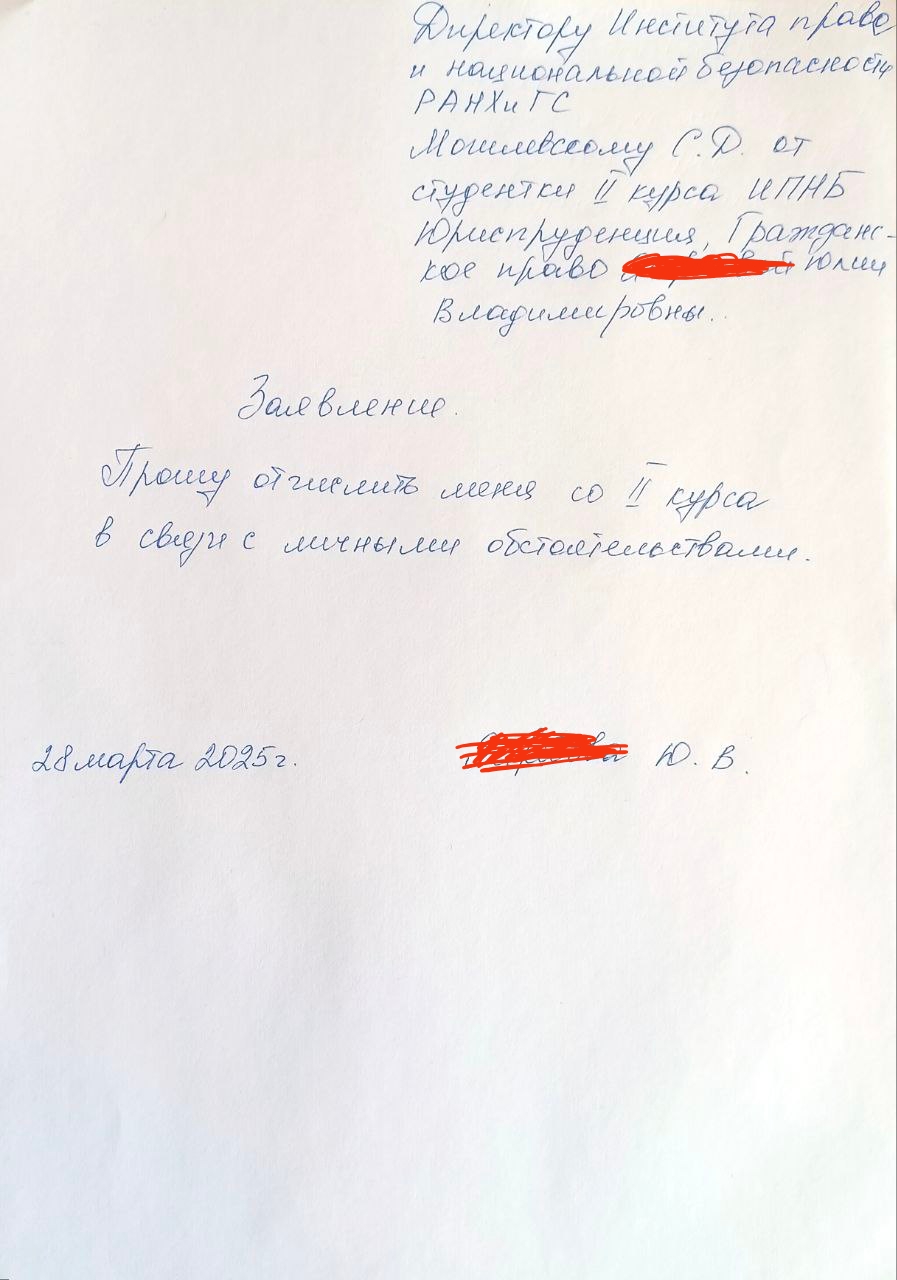 Директору Института права
и национальной безопасности
РАНХиГС
Могилевскому С.Д. от
студентки II курса ИПНБ
Юриспруденция, Гражданс-
кое право Юлии
Владимировны.
Заявление.
Прошу отчислить меня со II курса
в связи с личными обстоятельствами.
28 марта 2025г. Ю. В.